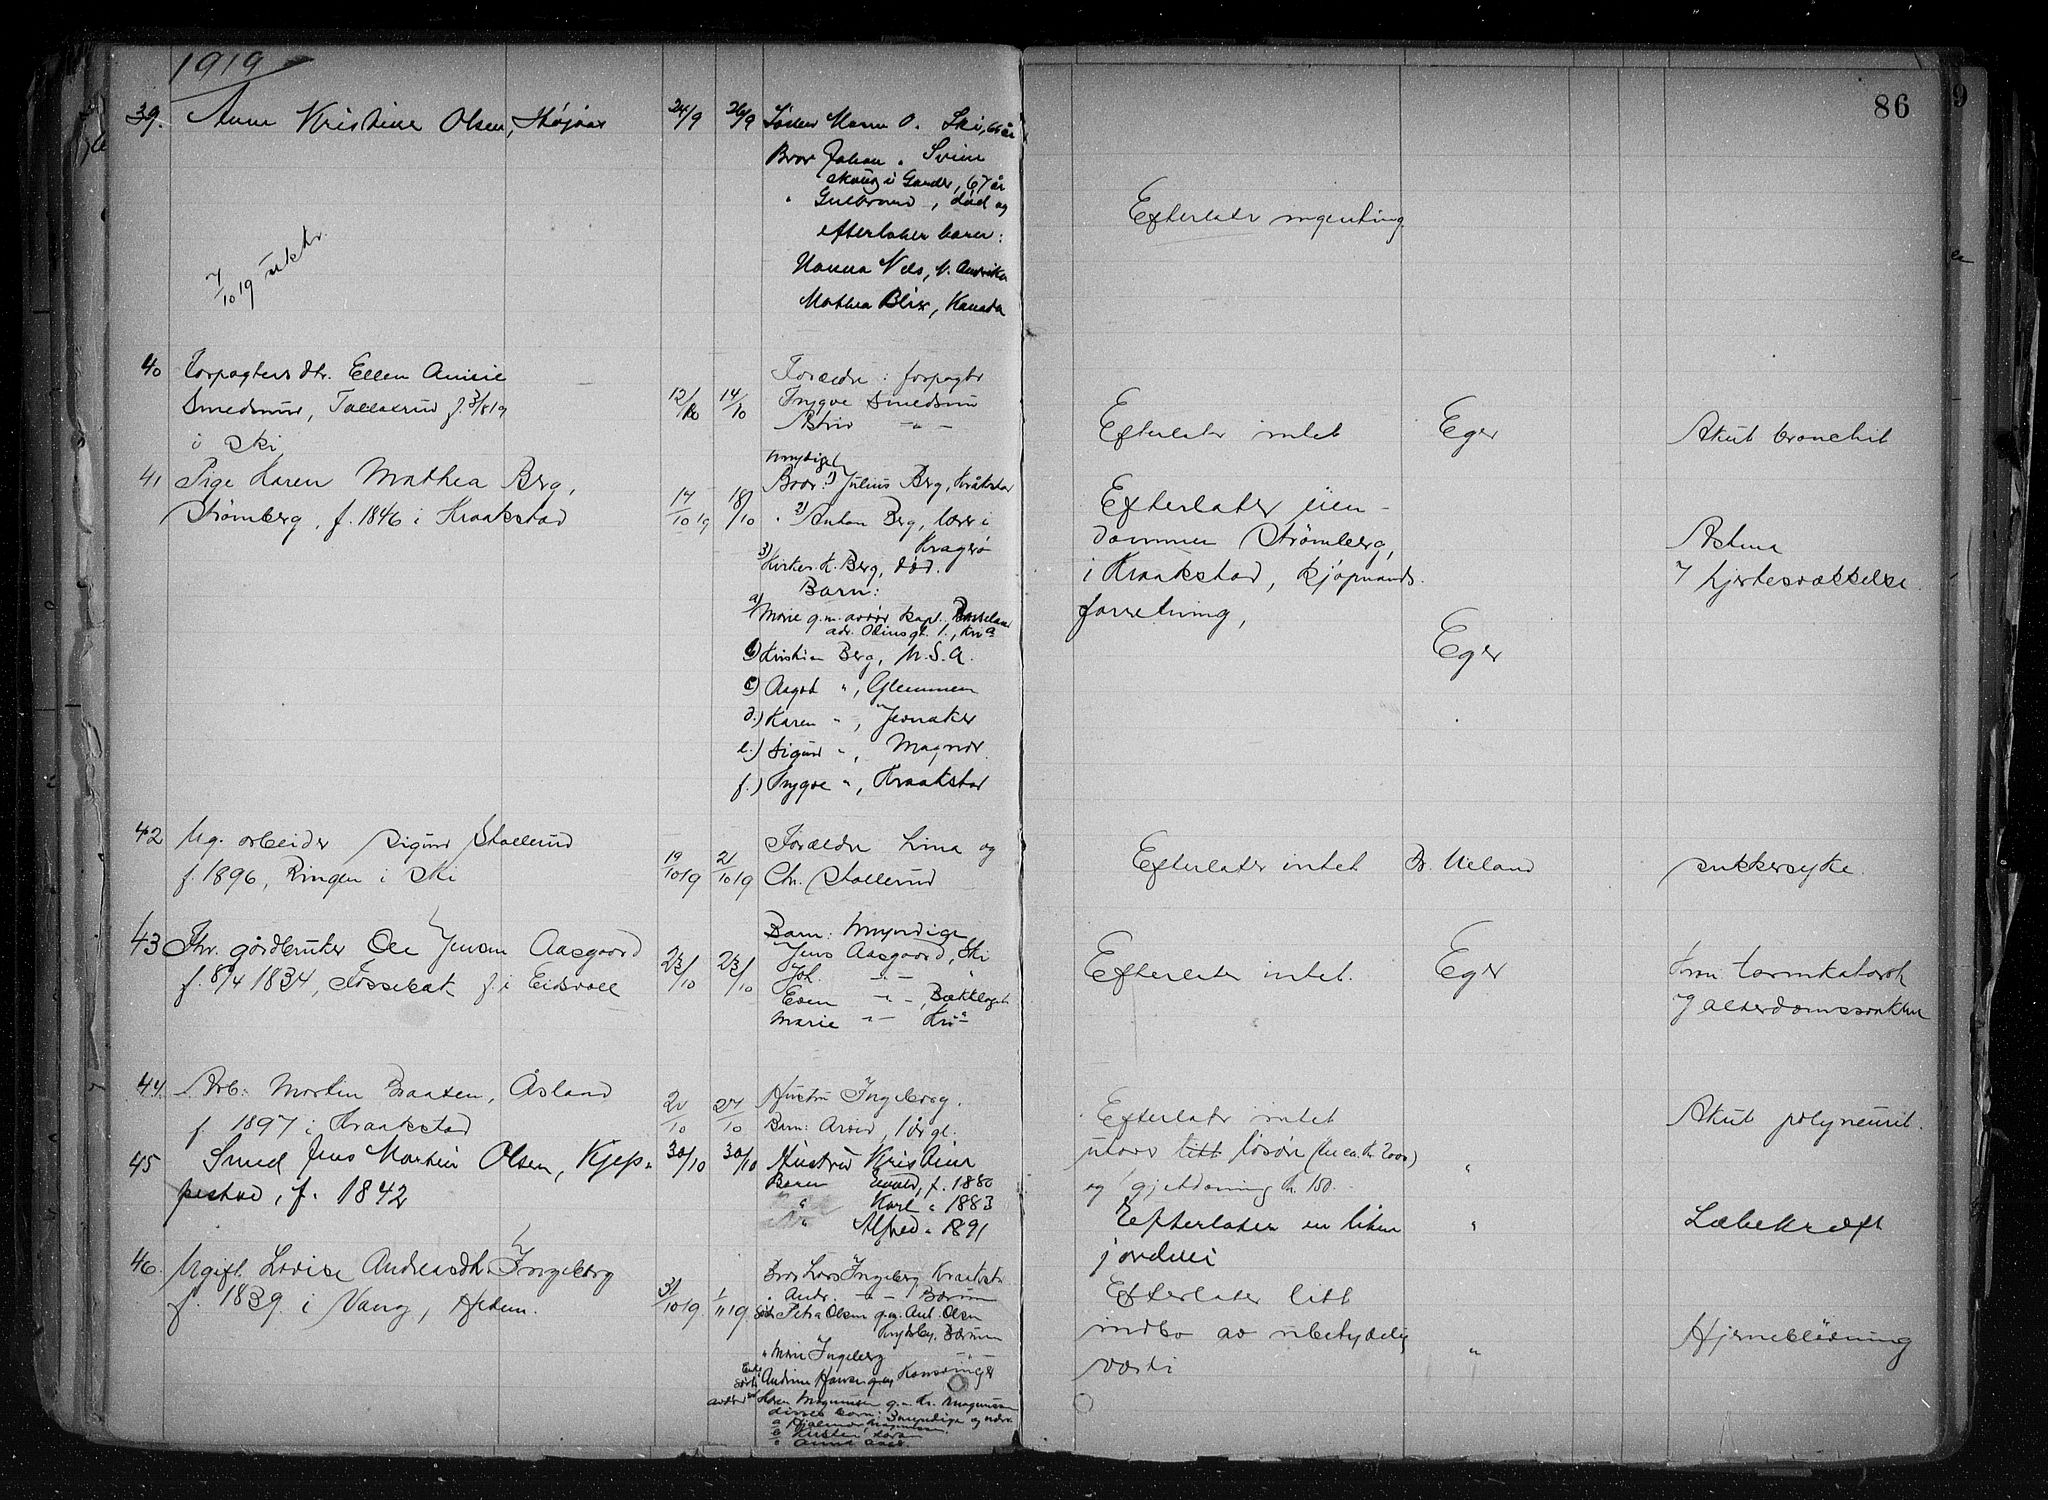 1919
86
39. Anne Kristine Olsen, 24/9 26/9 Søster Maren O. Ski, år
Bror Johan " 
skoug i Gander, 67 år
" Gulbrand, død og
efterlater barn:
Hanna Nels, N. Amerika
Mathea Blix, Kanada
Efterlater ingenting.
7/10 19
40 Forpagters dtr. Ellen
Smedsrud, f. 3/8 19
i Ski
12/10 14/10
Foreldre: forpagter
Trygve Smedsrud
Astrid - " -
Efterlater intet Eger Akut bronchit
41 Pige Karen Mathea Berg,
Strømberg, f. 1846 i Kraakstad
17/10 19 18/10
myndige
Bror: 1) Julius Berg, Kråkstad
" 2) Anton Berg, lærer i
Kragerø
3) Kirkes. K. Berg, død.
Barn:
a) Marie g.m. kapt.
adr. Odinsgt. 1, Kria
b) Kristian Berg, U.S.A.
c) Aagot ", Glemmen
d.) Karen ", Jevnaker
e.) Sigurd ", Magnor
f.) Trygve ", Kraakstad
Efterlater eien-
dommen Strømberg,
i Kraakstad, kjøpmands-
forretning,
Eger
Astma
hjertesvækkelse.
42 Ug. arbeider Sigurd Stallerud
f. 1896, Ringen i Ski
19/10 19 21/10 19
Forældre Lina og
Chr. Stallerud
Efterlater intet Dr. Ueland sukkersyke.
43 Fhv. gårdbruker Ole Jensen Aasgaard
f. 8/4 1834, Fossebæk f. i Eidsvoll
23/10 23/10
Barn: Myndige,
Jens Aasgaard, Ski
Joh. - " - "
Even - " -, Bækkelaget
Marie - " - Kria
Efterlater intet. Eger Kron tarmkatarrh
og alderdomssvakhet
44. Arb. Morten Braaten, Åsland
f. 1897 i Kraakstad
20/10 27/10
Hustru Ingeborg.
Barn: Arvid, 1 år gl.
Efterlater intet
utover litt løsøre (ca. kr 2000)
og gjetdoning kr. 150.-
"
Akut polyneurit.
45 Smed Jens Martin Olsen, Kjep-
pestad, f. 1842
30/10 30/10
Hustru Kristine
Barn Emald, f. 1880
" Karl " 1883
" Alfred " 1891
Efterlater en liten
jordvei
"
Læbekræft
46. Ugift Lovise Andreasdtr. Ingeberg
f. 1839 i Vang, Hedem.
31/10 19. 1/11 19
Bror Lars Ingeberg Kraakst.
" Andr. - " - Bærum
Søster Petra Olsen g.m. Ant. Olsen
Bærum
" Marie Ingeberg - " -
Enke
søster Andrine Hansen Kongsvinger
Karen Magnussen g.m. Kr. Magnussen
disses barn: 3 myndige
a Hjalmar Magnussen
b Kirsten
c Anna
Efterlater litt
indbo av ubetydelig
værdi
"
Hjerneblødning